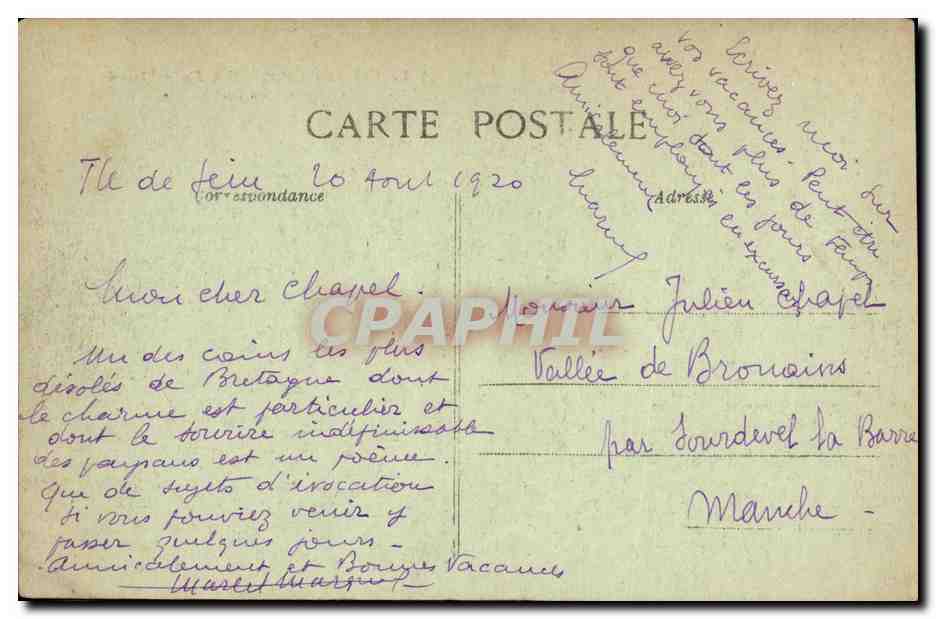 CARTE POSTALE
Correspondance
Adresse
Ile de Sein 20 Aout 1920
Mon cher Chapel.
Un des coins les plus
désolés de Bretagne dont
le charme est particulier et
dont le sourire indéfinissable
des paysans est un poème.
Que de sujets d'évocation
si vous pouviez venir y
passer quelques jours -
Amicalement et Bonnes Vacances
Marcel
Ecrivez moi sur
vos vacances. Peut être
avez vous plus de temps
que moi dont les jours
sont employés en excursions
Amicalement
Monsieur Julien Chapel
Vallée de Brouains
par Sourdeval la Barre
Manche -
CPAPHIL